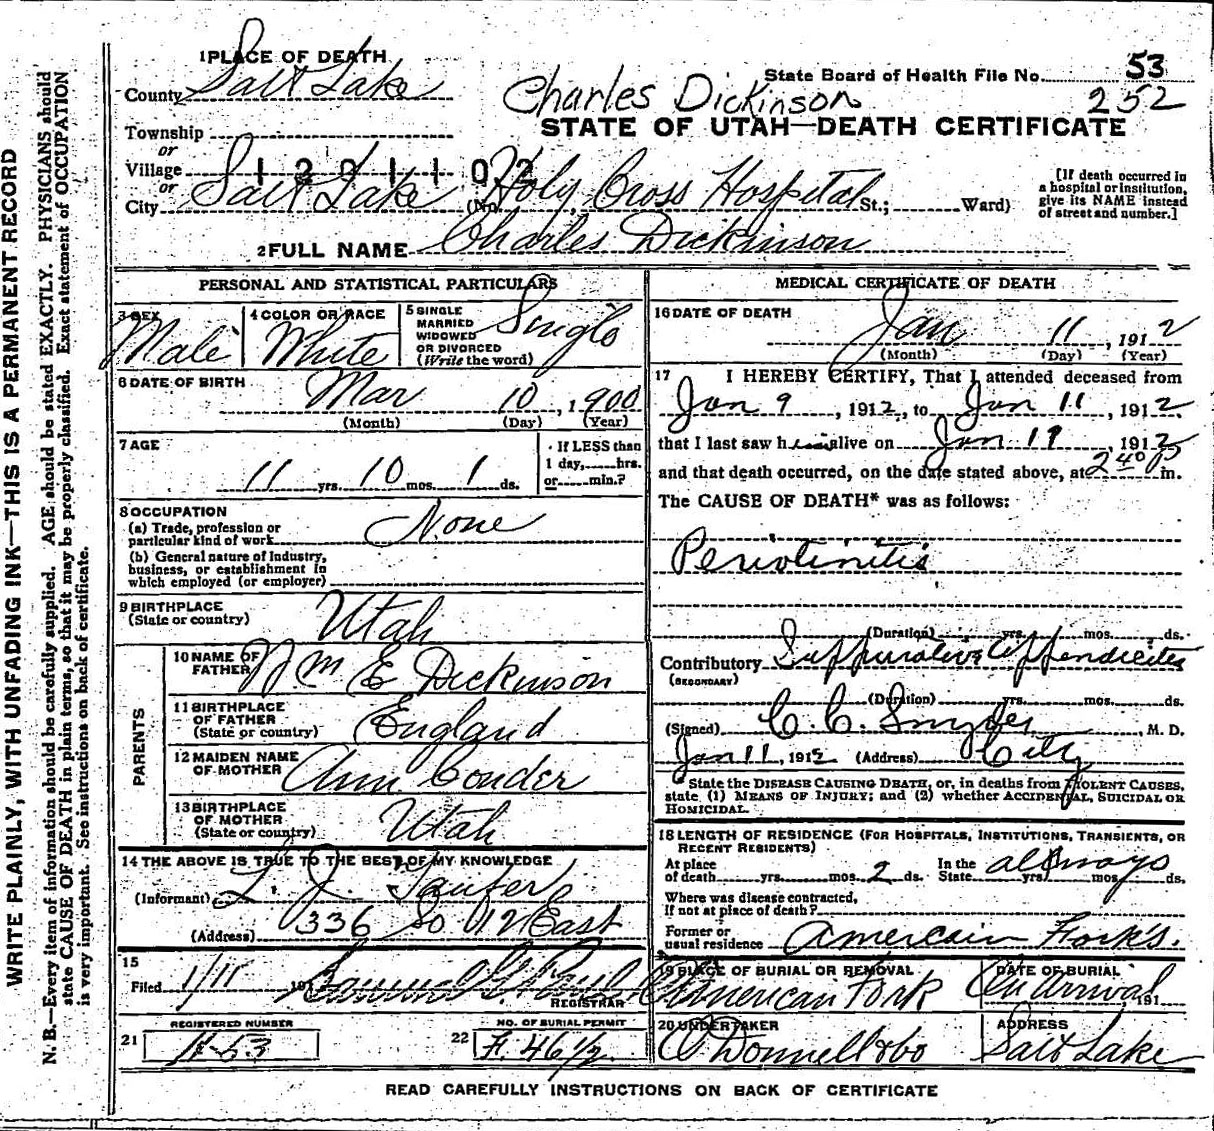 WRITE PLAINLY, WITH UNFADING INK—THIS IS A PERMANENT RECORD
N. B.—Every item of information should be carefully supplied. AGE should be stated EXACTLY. PHYSICIANS should
state CAUSE OF DEATH in plain terms, so that it may be properly classified. Exact statement of OCCUPATION
is very important. See instructions on back of certificate.
1 PLACE OF DEATH
County Salt Lake
State Board of Health File No. 53
Charles Dickinson 252
STATE OF UTAH—DEATH CERTIFICATE
Township
or
Village 1201102
or
City Salt Lake (No. Holy Cross Hospital St.; Ward)
[If death occurred in
a hospital or institution,
give its NAME instead
of street and number.]
2 FULL NAME Charles Dickinson
PERSONAL AND STATISTICAL PARTICULARS
3 SEX
Male
4 COLOR OR RACE
White
5 SINGLE
MARRIED
WIDOWED
OR DIVORCED
(Write the word)
Single
6 DATE OF BIRTH
Mar 10, 1900
(Month) (Day) (Year)
7 AGE
11 yrs. 10 mos. 1 ds.
If LESS than
1 day, hrs.
or min.?
8 OCCUPATION
(a) Trade, profession or
particular kind of work None
(b) General nature of industry,
business, or establishment in
which employed (or employer)
9 BIRTHPLACE
(State or country) Utah
PARENTS
10 NAME OF
FATHER Wm E Dickinson
11 BIRTHPLACE
OF FATHER
(State or country) England
12 MAIDEN NAME
OF MOTHER Ann Conder
13 BIRTHPLACE
OF MOTHER
(State or country) Utah
14 THE ABOVE IS TRUE TO THE BEST OF MY KNOWLEDGE
(Informant) L. J. Taufer
(Address) 336 So 12 East
15
Filed 1/11 191
REGISTRAR
REGISTERED NUMBER
21 H-53
NO. OF BURIAL PERMIT
22 F. 46 1/2
MEDICAL CERTIFICATE OF DEATH
16 DATE OF DEATH
Jan 11, 1912
(Month) (Day) (Year)
17 I HEREBY CERTIFY, That I attended deceased from
Jan 9, 1912, to Jan 11, 1912.
that I last saw him alive on Jan 11, 1912
and that death occurred, on the date stated above, at 2 40 P m.
The CAUSE OF DEATH* was as follows:
Periotinitis
(Duration) yrs. mos. ds.
Contributory Suppurative Appendicites
(SECONDARY)
(Duration) yrs. mos. ds.
(Signed) C. C. Snyder, M. D.
Jan 11, 1912 (Address) City
* State the DISEASE CAUSING DEATH, or, in deaths from VIOLENT CAUSES,
state (1) MEANS OF INJURY; and (2) whether ACCIDENTAL, SUICIDAL OR
HOMICIDAL.
18 LENGTH OF RESIDENCE (FOR HOSPITALS, INSTITUTIONS, TRANSIENTS, OR
RECENT RESIDENTS)
At place
of death yrs. mos. 2 ds. In the
State always yrs. mos. ds.
Where was disease contracted,
if not at place of death?
Former or
usual residence Amercain Fork's.
19 PLACE OF BURIAL OR REMOVAL
American Fork
DATE OF BURIAL
On arrival 191
20 UNDERTAKER
O Donnell & Co
ADDRESS
Salt Lake
READ CAREFULLY INSTRUCTIONS ON BACK OF CERTIFICATE